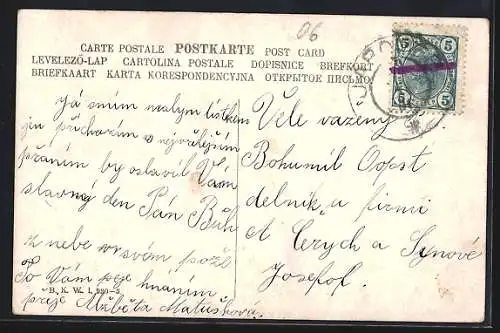 06
CARTE POSTALE POSTKARTE POST CARD
LEVELEZŐ-LAP CARTOLINA POSTALE DOPISNICE BREFKORT
BRIEFKAART KARTA KORESPONDENCYJNA ОТКРЫТОЕ ПИСЬМО
5 5
5 5
Já s tímto malym lístkem
jen přicházím s nejvřelejším
přáním by oslavil Vám
slavný den Pán Bůh
z nebe
To Vám přeje
přeje Alžběta Matušková.
B. K. W. I.
Vele važeny
Bohumil
delník u firmi
A Čerych a Synové
Josefof.